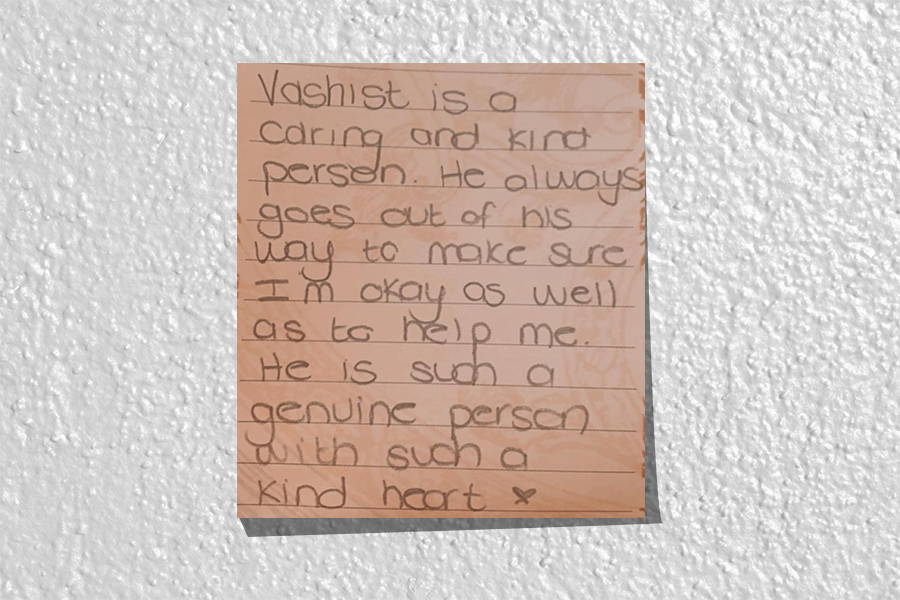 Vashist is a
caring and kind
person. He always
goes out of his
way to make sure
I'm okay as well
as to help me.
He is such a
genuine person
with such a
kind heart x